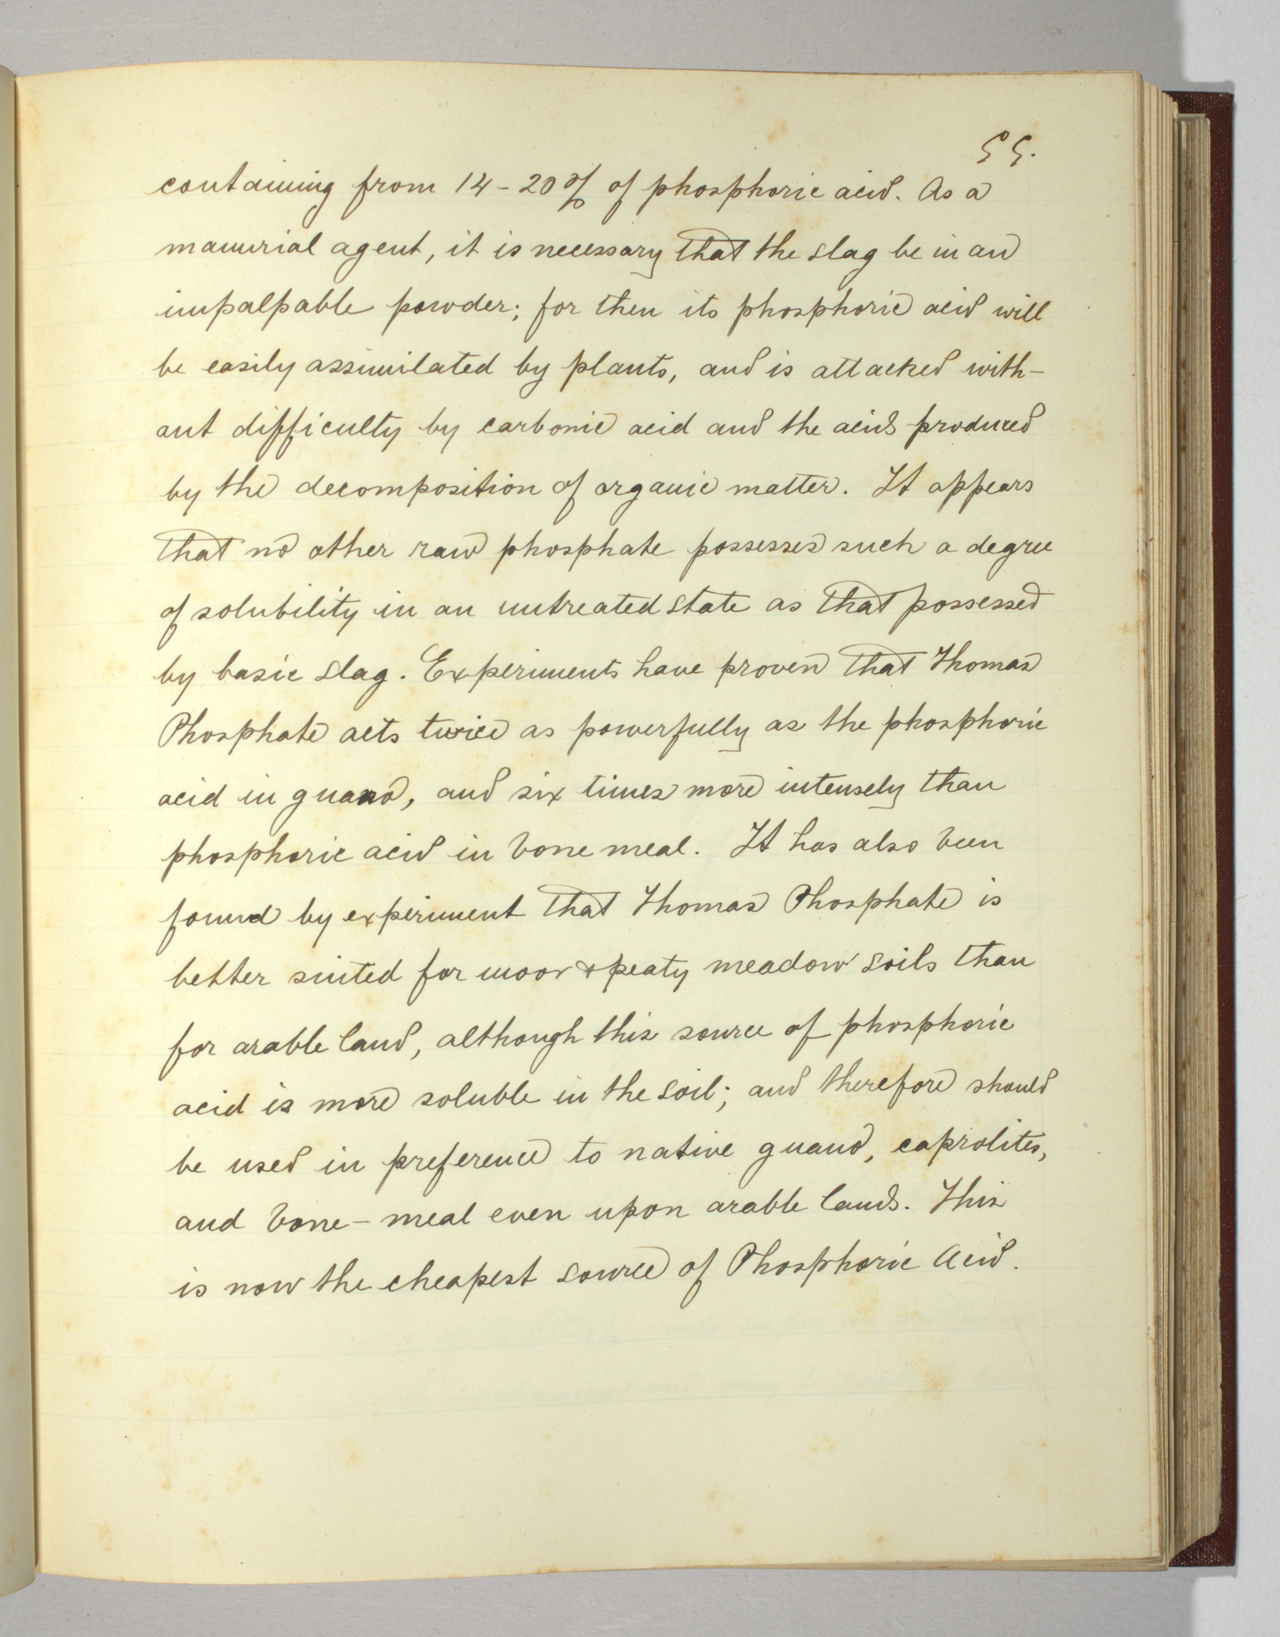 55.
containing from 14-20% of phosphoric acid. As a
manurial agent, it is necessary that the slag be in an
impalpable powder; for then its phosphoric acid will
be easily assimilated by plants, and is attacked with-
out difficulty by carbonic acid and the acids produced
by the decomposition of organic matter. It appears
that no other raw phosphate possesses such a degree
of solubility in an untreated state as that possessed
by basic slag. Experiments have proven that Thomas
Phosphate acts twice as powerfully as the phosphoric
acid in guano, and six times more intensely than
phosphoric acid in bone meal. It has also been
found by experiment that Thomas Phosphate is
better suited for moor & peaty meadow soils than
for arable land, although this source of phosphoric
acid is more soluble in the soil; and therefore should
be used in preference to native guano, caprolites,
and bone-meal even upon arable lands. This
is now the cheapest source of Phosphoric Acid.